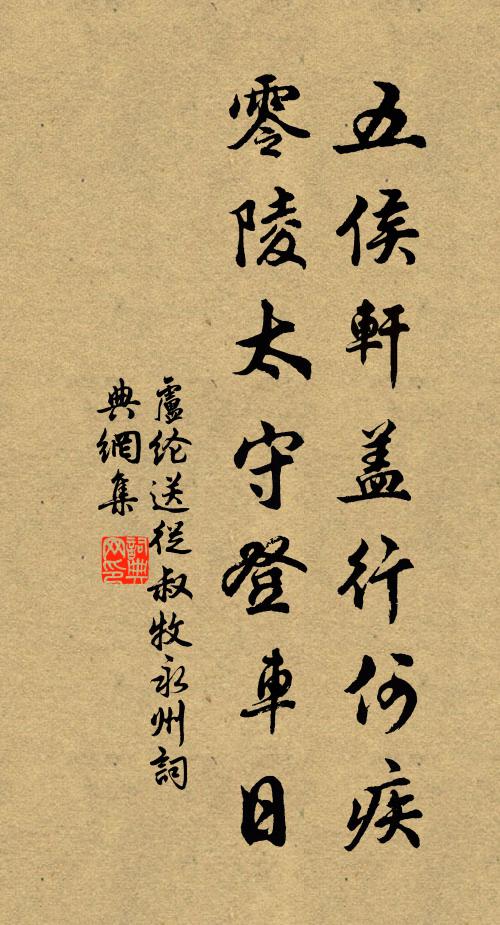 五侯軒盖行何疾
零陵太守登車日
盧纶送從叔牧永州詞
典網集
詞典
网印